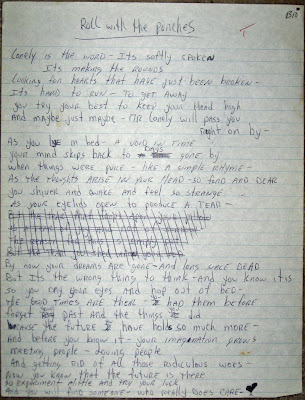 Roll with the punches
Lonely is the word - Its softly spoken
Its making the rounds
Looking for hearts that have just been broken -
Its hard to run - to get away
you try your best to keep your head high
And maybe just maybe - Mr Lonely will pass you
right on by -
As you lye in bed - a work in time
your mind skips back to days gone by
when things were pure - like a simple rhyme -
As the thoughts arise in your head - so fond and dear
you shiver and quake and feel so strange
As your eyelids open to produce a tear -
By now your dreams are gone - and long since dead
But its the wrong thing to think - and you know it is
so you dry your eyes and pop out of bed -
the good times are there - I had them before
forget past and the things I did
because the future I have holds so much more -
And before you know it - your imagination grows
meeting people - loving people
And getting rid of all those ridiculous woes -
Now you know that the future is there
so experiment a little and try your luck
And you will find someone - who really does care -